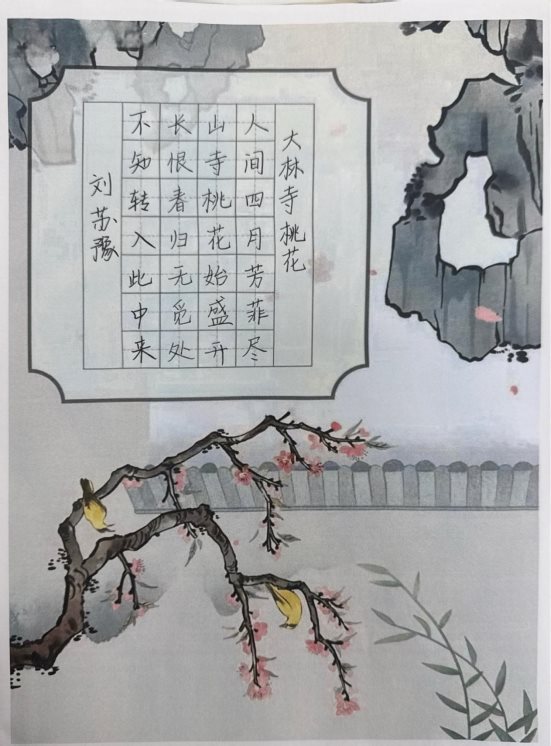 大林寺桃花
人间四月芳菲尽
山寺桃花始盛开
长恨春归无觅处
不知转入此中来
刘苏豫